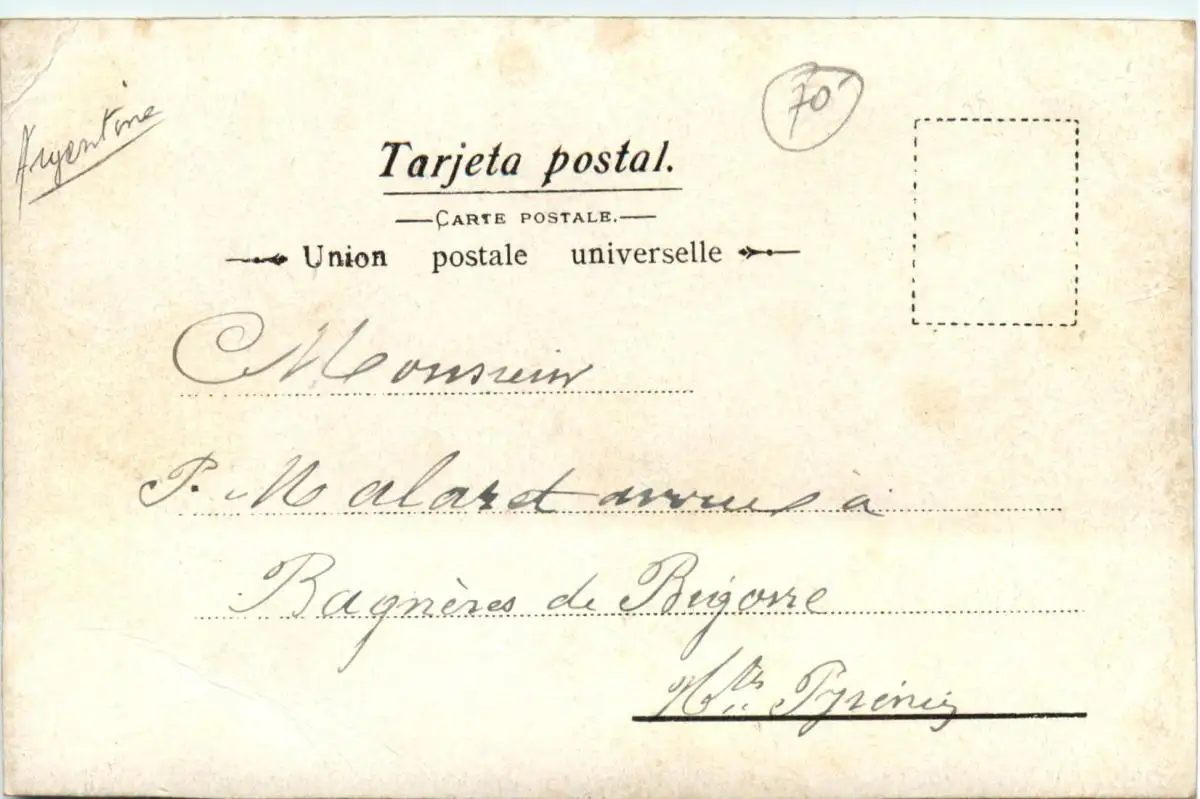 Argentine
70
Tarjeta postal.
CARTE POSTALE.
Union postale universelle
Monsieur
P. Malaret avoué à
Bagnères de Bigorre
Htes Pyrénées